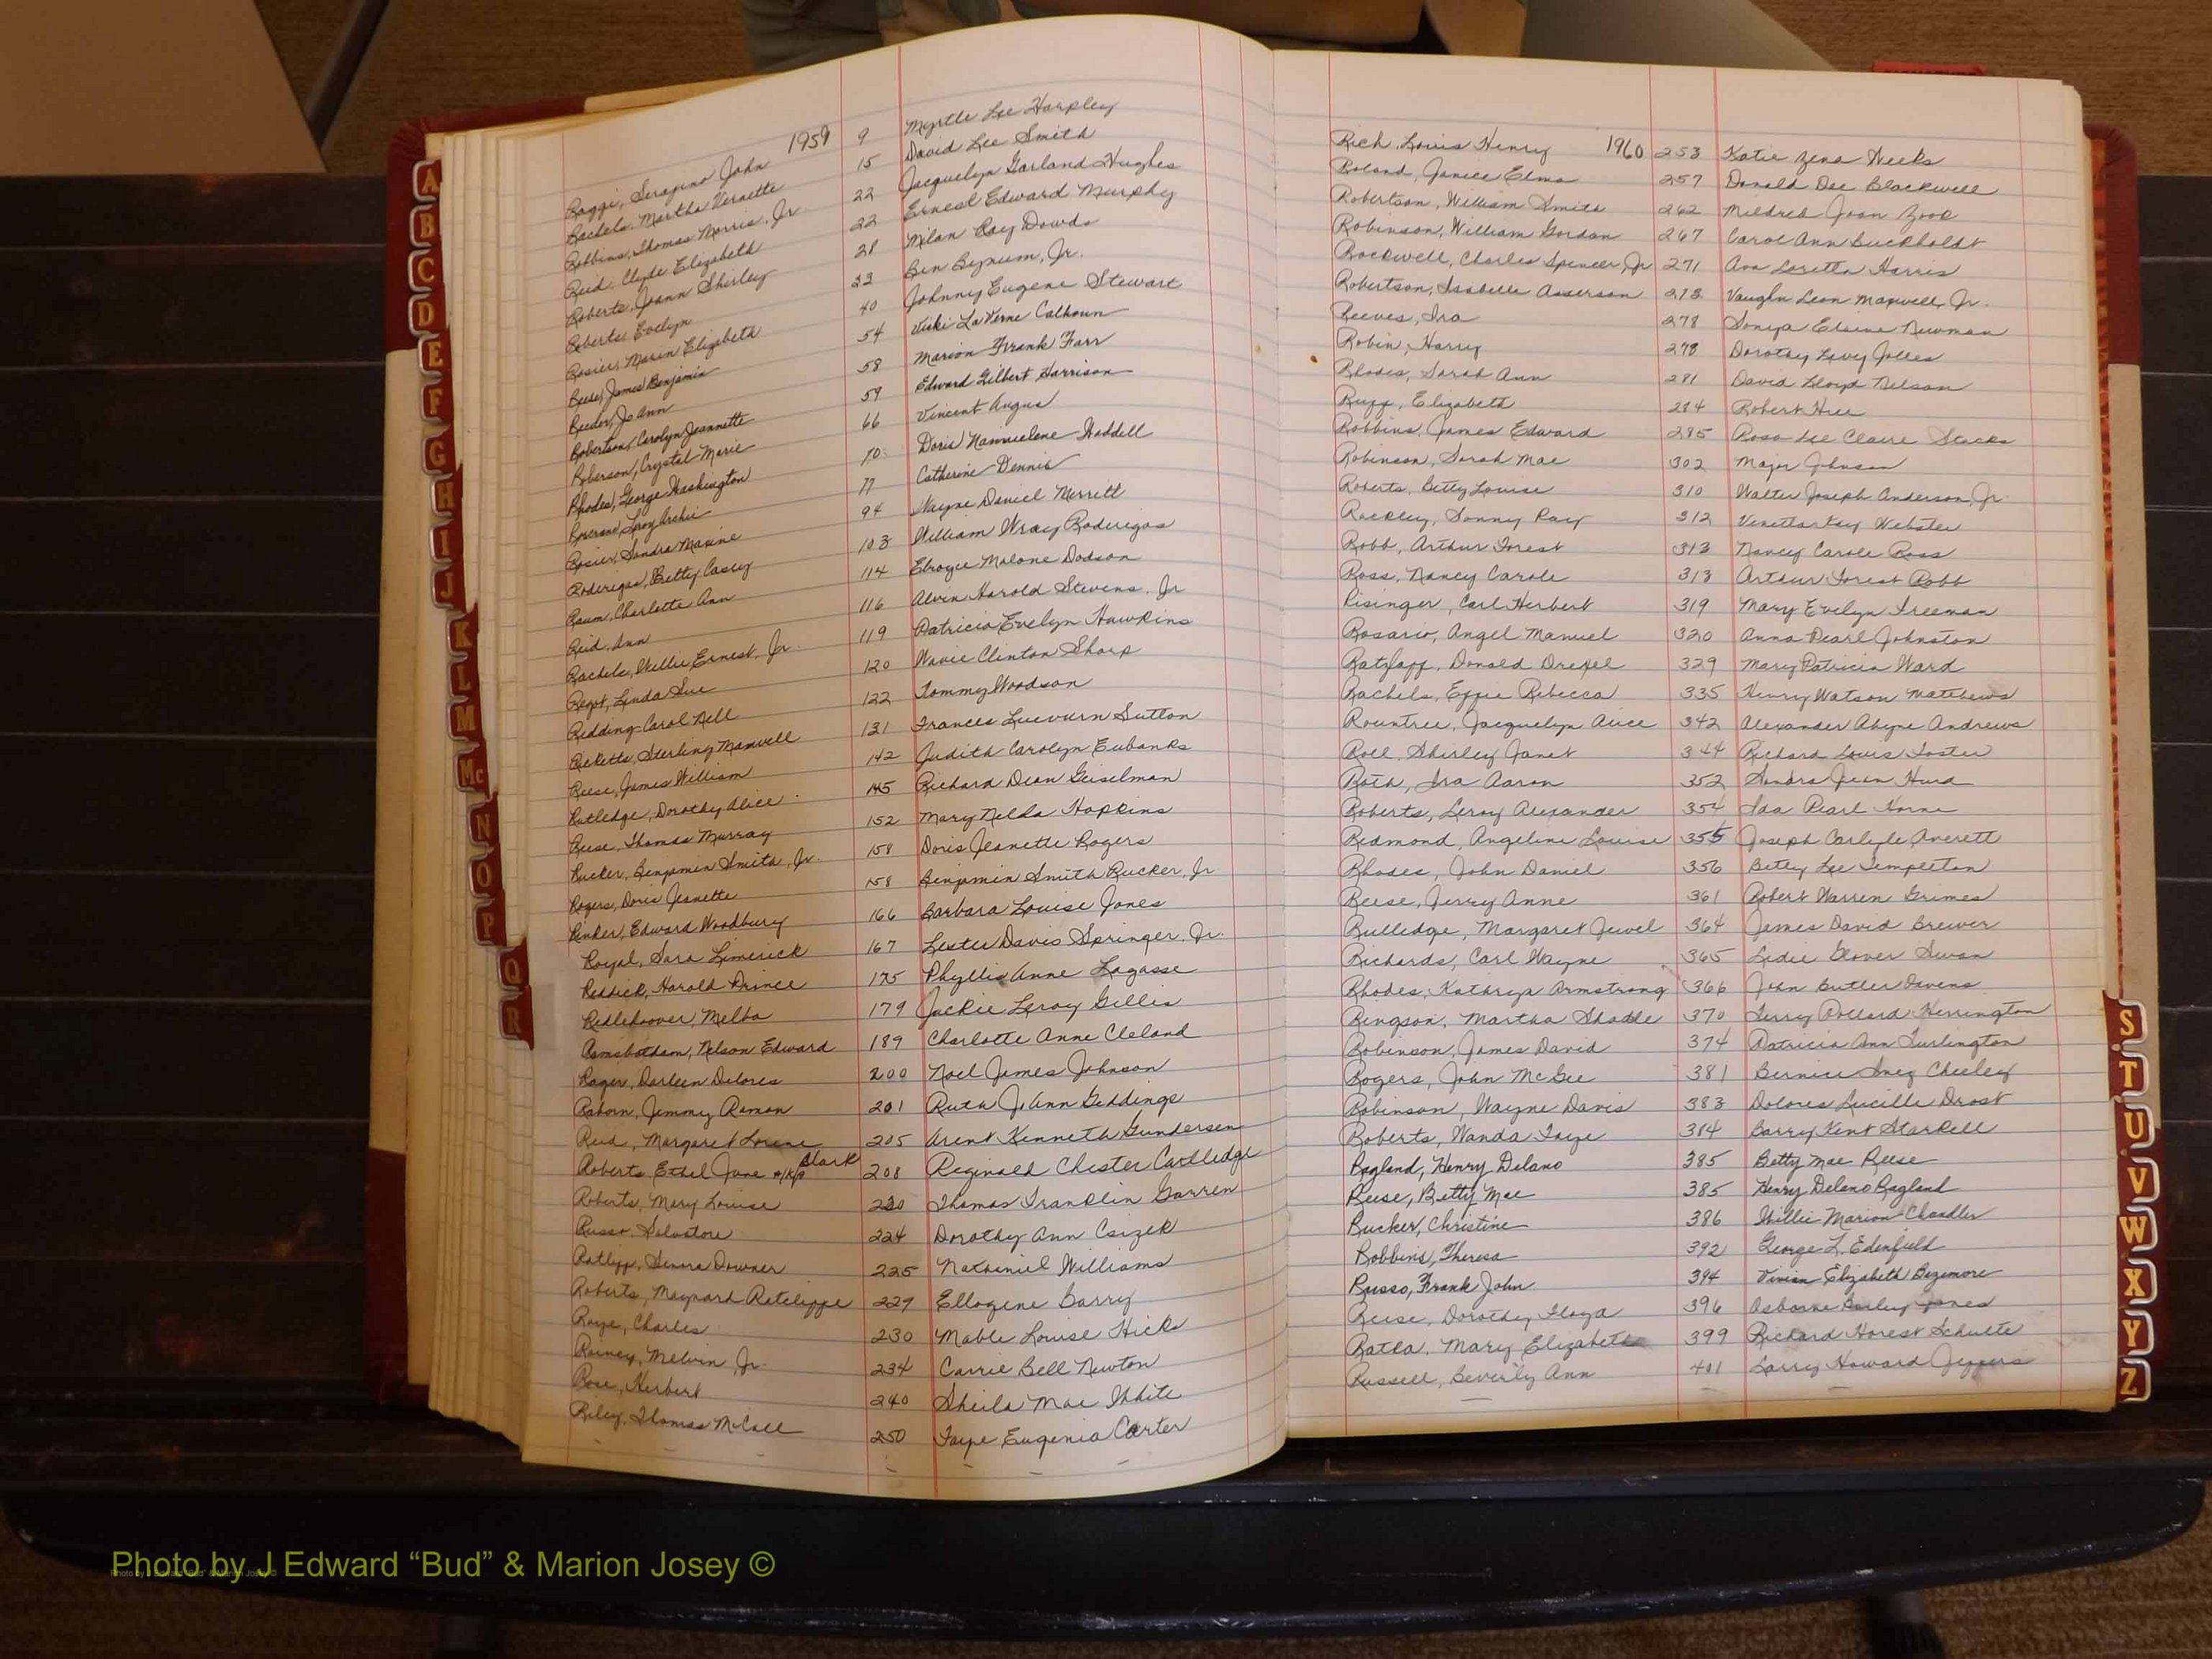 1959
Raggi, Serafino John 9 Myrtle Lee Harpley
Rachels, Martha Vernette 15 David Lee Smith
Robbins, Thomas Morris, Jr. 22 Jacquelyn Garland Hughes
Reid, Clyde Elizabeth 22 Ernest Edward Murphy
Roberts, Joann Shirley 28 Milan Ray Dowds
Roberts, Evelyn 33 Ben Bynum, Jr.
Rosier, Maxin Elizabeth 40 Johnny Eugene Stewart
Reese, James Benjamin 54 Vicki LaVerne Calhoun
Reeder, Jo Ann 58 Marion Frank Farr
Robertson, Carolyn Jeannette 59 Edward Gilbert Harrison
Roberson, Crystal Marie 66 Vincent Angus
Rhodes, George Washington 70 Doris Waddell
Leroy Archie 77 Catherine Dennis
Rosier, Sandra Maxine 94 Wayne Daniel Merrett
Roderigas, Betty Casey 103 William Wray Roderigas
Raum, Charlotte Ann 114 Elroyce Malone Dodson
Reid, Ann 116 Alvin Harold Stevens, Jr
Rachels, Willie Ernest, Jr. 119 Patricia Evelyn Hawkins
Linda Sue 120 Wavie Clinton Sharp
Redding, Carol Nell 122 Tommy Woodson
Ricketts, Sterling Maxwell 131 Frances Luevurn Sutton
Reese, James William 142 Judith Carolyn Eubanks
Rutledge, Dorothy Alice 145 Richard Dean Geiselman
Reese, Thomas Murray 152 Mary Nelda Hopkins
Rucker, Benjamin Smith, Jr. 158 Doris Jeanette Rogers
Rogers, Doris Jeanette 158 Benjamin Smith Rucker, Jr
Rinker, Edward Woodbury 166 Barbara Louise Jones
Royal, Sara Limerick 167 Lester Davis Springer, Jr.
Reddick, Harold Prince 175 Phyllis Anne Lagasse
Redlehoover, Melba 179 Jackie Leroy Gillis
Ramsbotham, Nelson Edward 189 Charlotte Anne Cleland
Rager, Darleen Delores 200 Noel James Johnson
Raborn, Jimmy Ramon 201 Ruth JoAnn Geddings
Reid, Margaret Lorene 205 Arent Kenneth Gundersen
Roberts, Ethel June a/k/a Clark 208 Reginald Chester Cartledge
Roberts, Mary Louise 220 Thomas Franklin Garren
Russo, Salvatore 224 Dorothy Ann Csizek
Ratliff, Downer 225 Nathiniel Williams
Roberts, Maynard Ratcliffe 229 Ellogene Barry
Raye, Charles 230 Mable Louise Hicks
Rainey, Melvin, Jr. 234 Carrie Bell Newton
Rose, Herbert 240 Sheila Mae White
Riley, Thomas McCall 250 Faye Eugenia Carter
Rich, Louis Henry 1960 253 Katie Zena Weeks
Roland, Janice Elma 257 Donald Dee Blackwell
Robertson, William Smith 262 Mildred Joan Zook
Robinson, William Gordan 267 Carol Ann Buckholdt
Rockwell, Charles Spencer, Jr 271 Ava Loretta Harris
Robertson, Isabelle Asserson 273 Vaughn Leon Maxwell, Jr.
Reeves, Ira 278 Sonya Elaine Newman
Robin, Harry 278 Dorothy Levy Jolles
Rhodes, Sarah Ann 281 David Lloyd Nelson
Ruff, Elizabeth 284 Robert Hill
Robbins, James Edward 285 Rosa Lee Claire Stacks
Robinson, Sarah Mae 302 Major Johnson
Roberts, Betty Louise 310 Walter Joseph Anderson, Jr.
Rackley, Sonny Ray 312 Venetta Kay Webster
Robb, Arthur Forest 313 Nancy Carole Ross
Ross, Nancy Carole 313 Arthur Forest Robb
Risinger, Carl Herbert 319 Mary Evelyn Freeman
Rosario, Angel Manuel 320 Anna Pearl Johnston
Ratzlaff, Donald Drexel 329 Mary Patricia Ward
Rachels, Effie Rebecca 335 Henry Watson Matthews
Rountree, Jacquelyn Alice 342 Alexander Abyne Andrews
Roll, Shirley Janet 344 Richard Louis Foster
Roth, Ira Aaron 352 Sandra Jean Hurd
Roberts, Leroy Alexander 354 Ida Pearl Horne
Redmond, Angeline Louise 355 Joseph Carlyle Averett
Rhodes, John Daniel 356 Betty Lee Templeton
Reese, Jerry Anne 361 Robert Warren Grimes
Rulledge, Margaret Jewel 364 James David Brewer
Richards, Carl Wayne 365 Lidie Glover Swan
Rhodes, Kathryn Armstrong 366 John Butler Owens
Ringson, Martha Shadde 370 Terry Pollard Herrington
Robinson, James David 374 Patricia Ann Turlington
Rogers, John McGee 381 Bernice Inez Cheeley
Robinson, Wayne Davis 383 Dolores Lucille Drost
Roberts, Wanda Faye 384 Barry Kent Starkell
Ragland, Henry Delano 385 Betty Mae Reese
Reese, Betty Mae 385 Henry Delano Ragland
Rucker, Christine 386 Willie Marion Chandler
Robbins, Theresa 392 George L. Edenfield
Russo, Frank John 394 Vivian Elizabeth Bezemore
Reese, Dorothy Floyd 396 Osborne Jones
Ratla, Mary Elizabeth 399 Richard Horest Schulte
Russell, Beverly Ann 401 Larry Howard Jeffers
A
B
C
D
E
F
G
H
I
J
K
L
M
Mc
N
O
P
Q
R
S
T
U
V
W
X
Y
Z
Photo by J Edward “Bud” & Marion Josey ©
Photo by J Edward "Bud" & Marion Josey ©